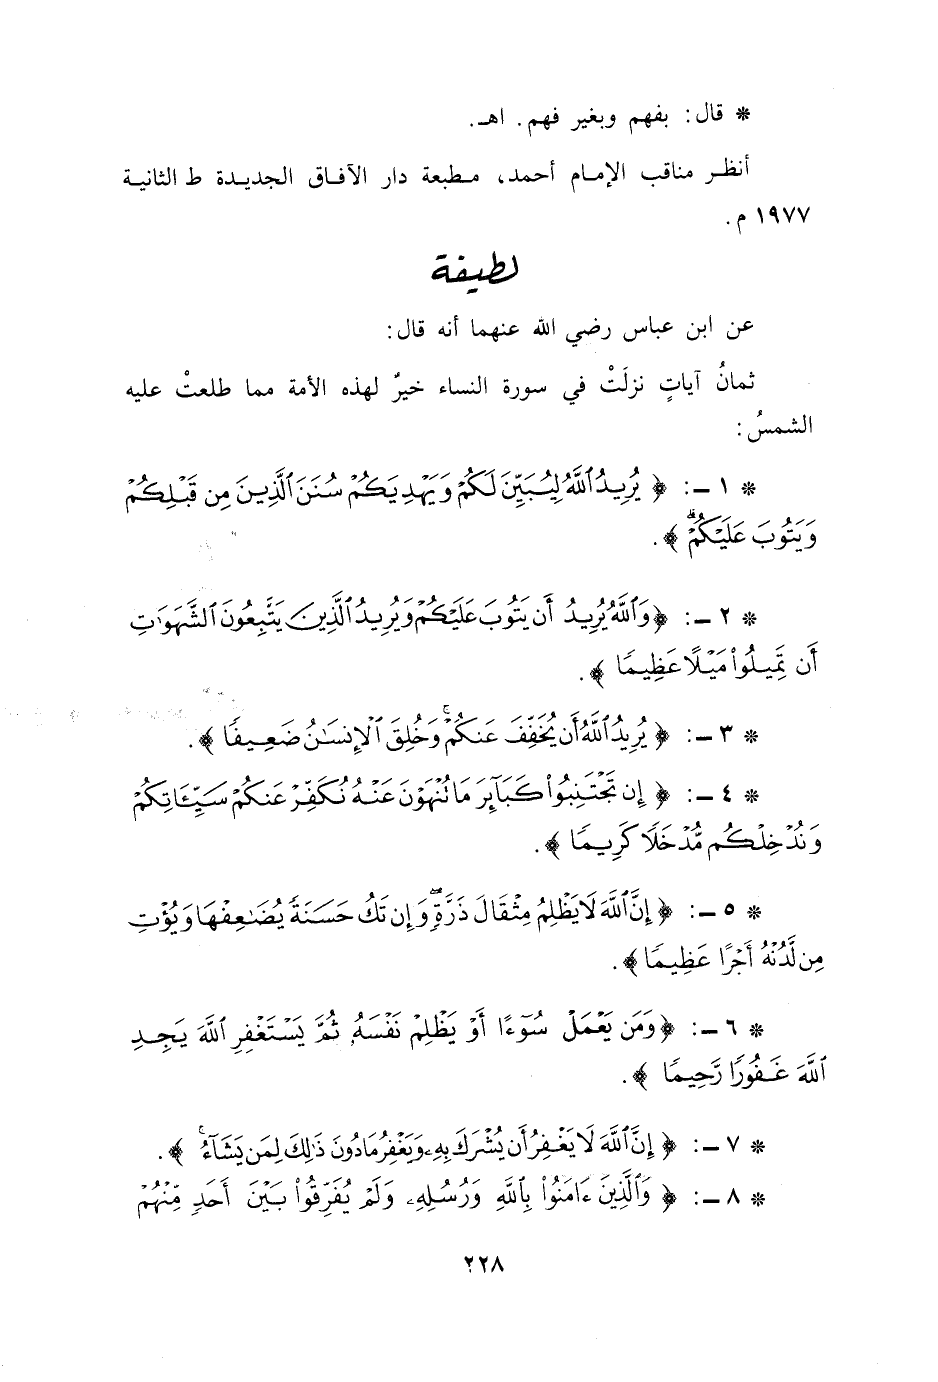 * قال: بفهم وبغير فهم. اهـ.
أنظر مناقب الإمام أحمد، مطبعة دار الآفاق الجديدة ط الثانية
١٩٧٧ م.
لطيفة
عن ابن عباس رضي الله عنهما أنه قال:
ثمانُ آياتٍ نزلَتْ في سورة النساء خيرٌ لهذه الأمة مما طلعتْ عليه
الشمسُ:
* ١ -: ﴿ يُرِيدُ ٱللَّهُ لِيُبَيِّنَ لَكُمْ وَيَهْدِيَكُمْ سُنَنَ ٱلَّذِينَ مِن قَبْلِكُمْ
وَيَتُوبَ عَلَيْكُمْ ۗ ﴾.
* ٢ -: ﴿ وَٱللَّهُ يُرِيدُ أَن يَتُوبَ عَلَيْكُمْ وَيُرِيدُ ٱلَّذِينَ يَتَّبِعُونَ ٱلشَّهَوَٰتِ
أَن تَمِيلُوا۟ مَيْلًا عَظِيمًا ﴾.
* ٣ -: ﴿ يُرِيدُ ٱللَّهُ أَن يُخَفِّفَ عَنكُمْ ۚ وَخُلِقَ ٱلْإِنسَٰنُ ضَعِيفًا ﴾.
* ٤ -: ﴿ إِن تَجْتَنِبُوا۟ كَبَآئِرَ مَا تُنْهَوْنَ عَنْهُ نُكَفِّرْ عَنكُمْ سَيِّـَٔاتِكُمْ
وَنُدْخِلْكُم مُّدْخَلًا كَرِيمًا ﴾.
* ٥ -: ﴿ إِنَّ ٱللَّهَ لَا يَظْلِمُ مِثْقَالَ ذَرَّةٍ ۖ وَإِن تَكُ حَسَنَةً يُضَٰعِفْهَا وَيُؤْتِ
مِن لَّدُنْهُ أَجْرًا عَظِيمًا ﴾.
* ٦ -: ﴿ وَمَن يَعْمَلْ سُوٓءًا أَوْ يَظْلِمْ نَفْسَهُۥ ثُمَّ يَسْتَغْفِرِ ٱللَّهَ يَجِدِ
ٱللَّهَ غَفُورًا رَّحِيمًا ﴾.
* ٧ -: ﴿ إِنَّ ٱللَّهَ لَا يَغْفِرُ أَن يُشْرَكَ بِهِۦ وَيَغْفِرُ مَا دُونَ ذَٰلِكَ لِمَن يَشَآءُ ۚ ﴾.
* ٨ -: ﴿ وَٱلَّذِينَ ءَامَنُوا۟ بِٱللَّهِ وَرُسُلِهِۦ وَلَمْ يُفَرِّقُوا۟ بَيْنَ أَحَدٍ مِّنْهُمْ
٢٢٨